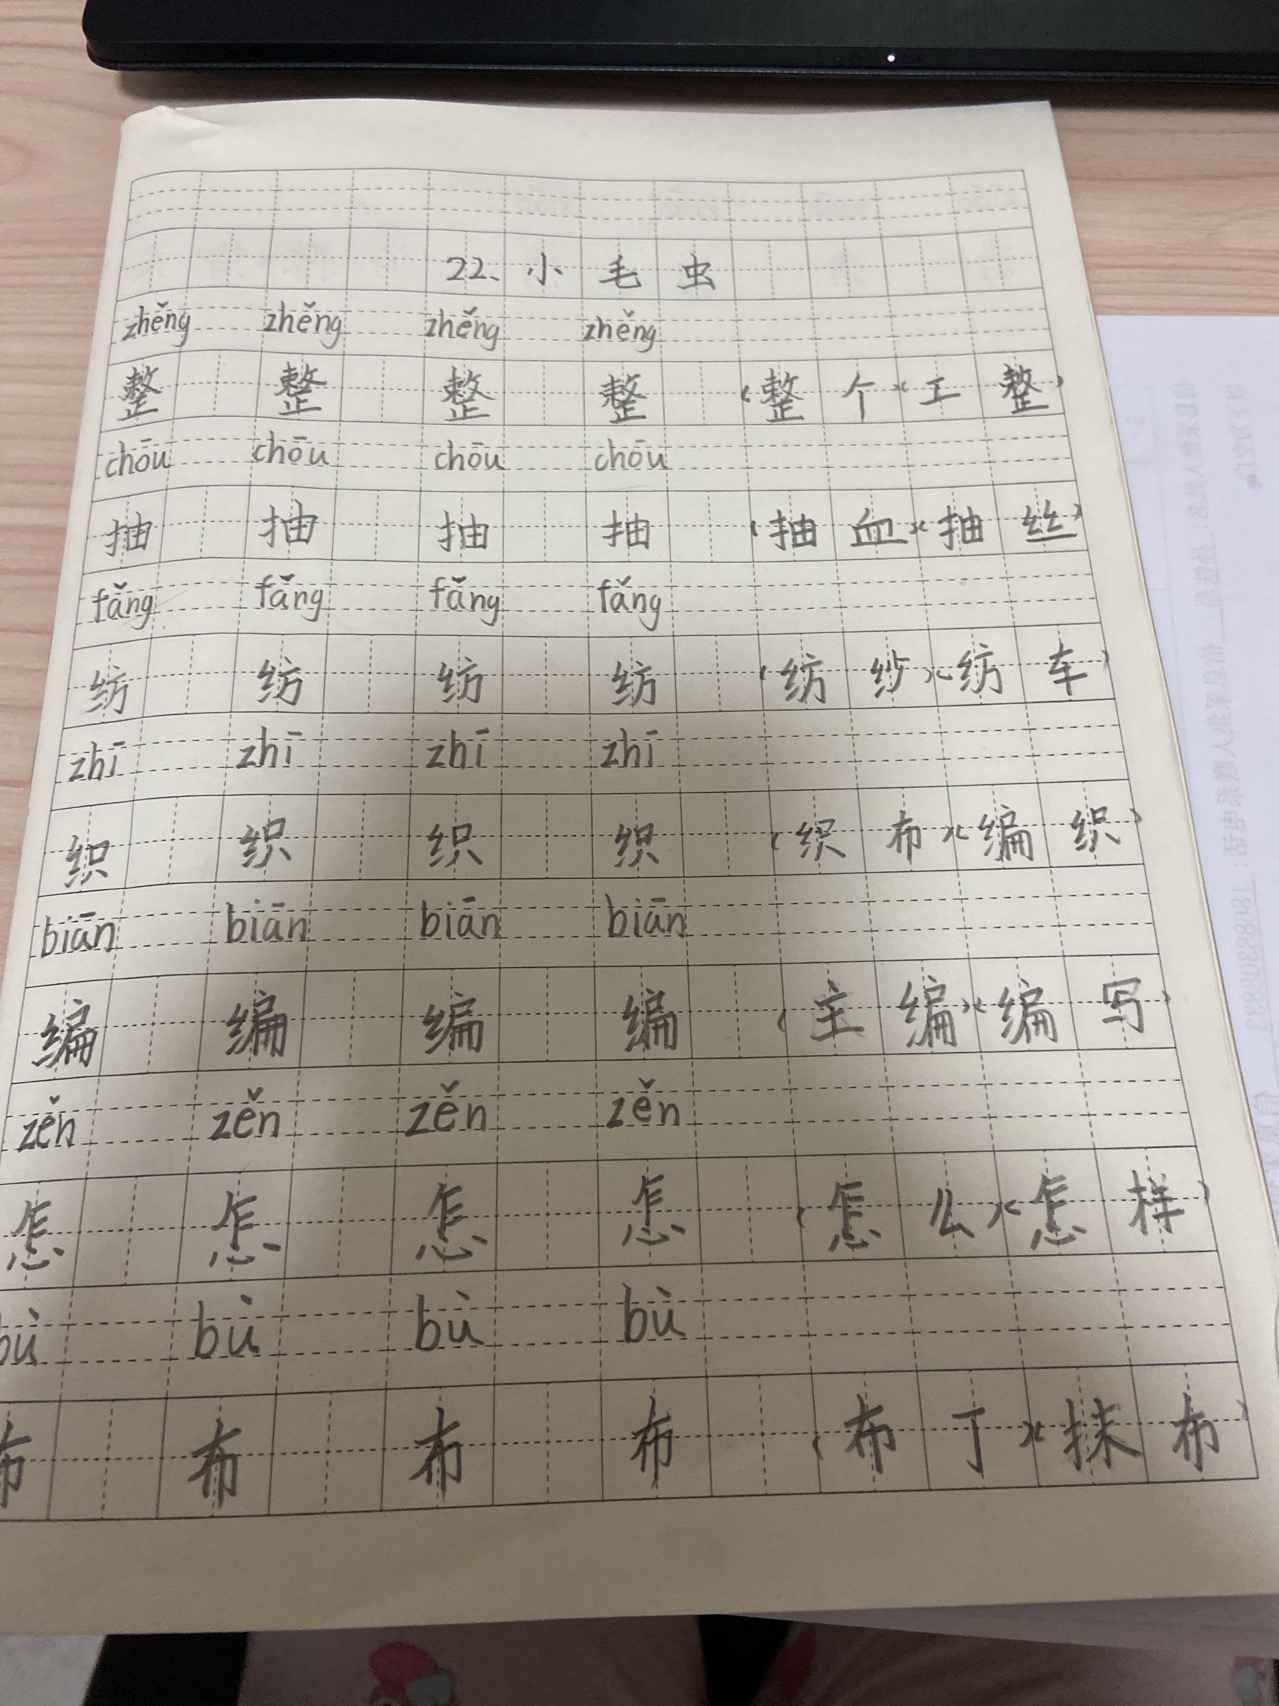 22、小毛虫
zhěng zhěng zhěng zhěng
整 整 整 整 （整个）（工整）
chōu chōu chōu chōu
抽 抽 抽 抽 （抽血）（抽丝）
fǎng fǎng fǎng fǎng
纺 纺 纺 纺 （纺纱）（纺车）
zhī zhī zhī zhī
织 织 织 织 （织布）（编织）
biān biān biān biān
编 编 编 编 （主编）（编写）
zěn zěn zěn zěn
怎 怎 怎 怎 （怎么）（怎样）
bù bù bù bù
布 布 布 布 （布丁）（抹布）